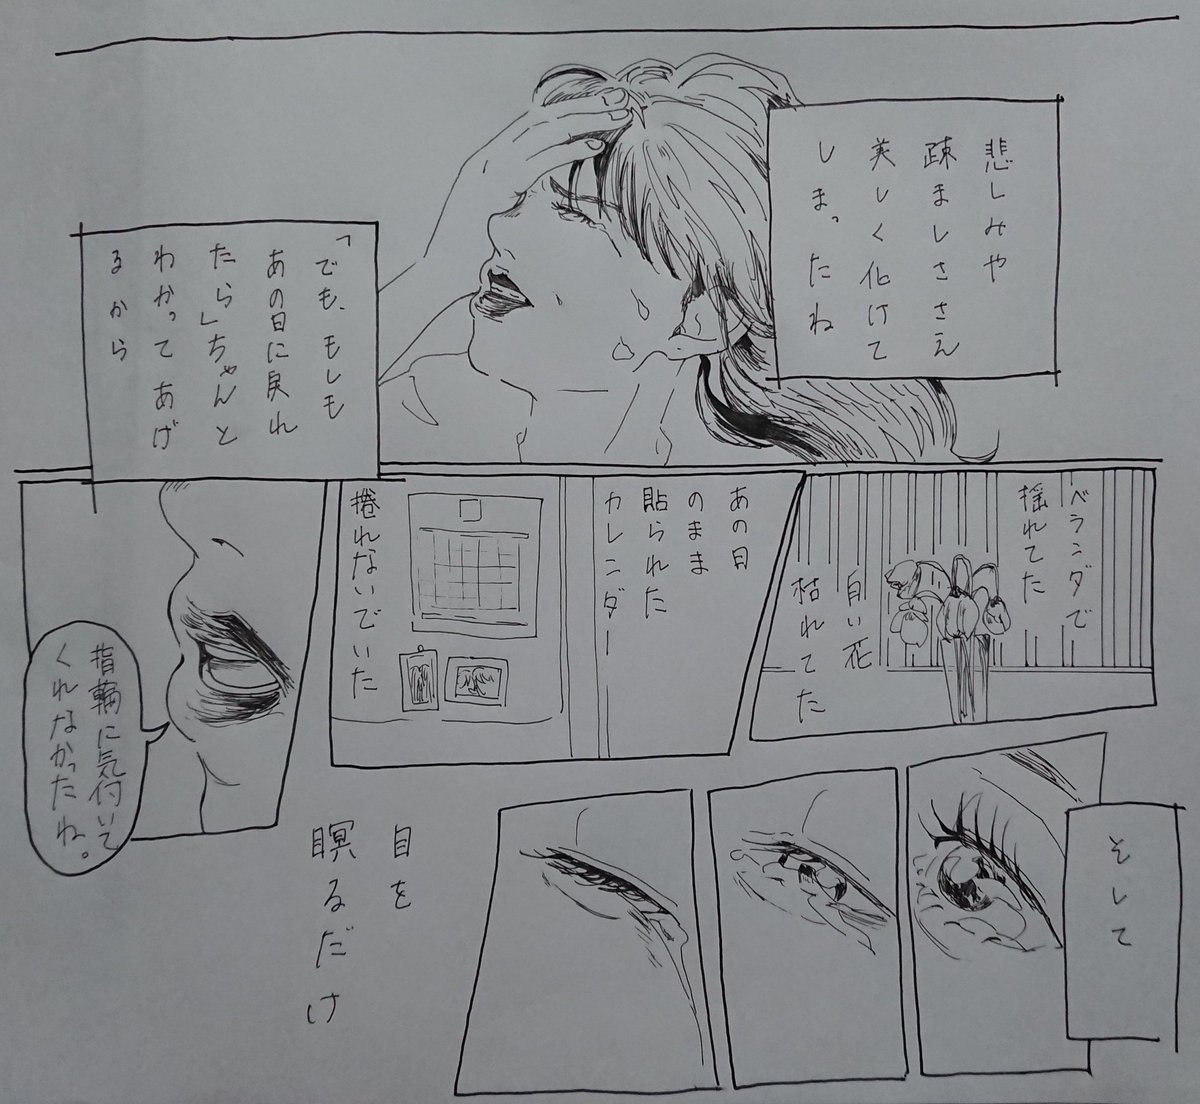 悲しみや
疎ましささえ
美しく化けて
しまったね
「でも、もしも
あの日に戻れ
たら」ちゃんと
わかってあげ
るから
ベランダで
揺れてた
白い花
枯れてた
あの日
のまま
貼られた
カレンダー
捲れないでいた
指輪に気付いて
くれなかったね。
そして
目を
瞑るだけ